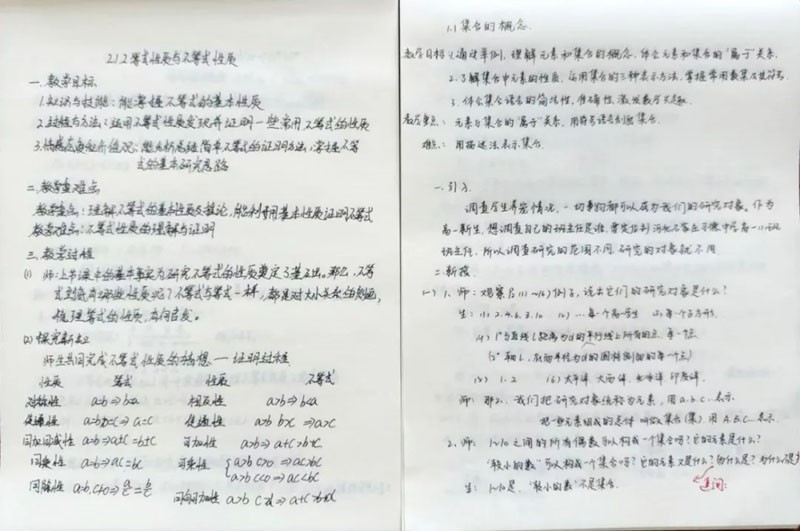 2.1.2等式性质与不等式性质
一.教学目标
1.知识与技能:能掌握不等式的基本性质
2.过程与方法:运用不等式性质发现并证明一些常用不等式的性质
3.情感态度
式的基本研究思路
二.教学重难点
教学重点:理解不等式的基本性质及推论,能利用基本性质证明不等式
教学难点:不等式性质的理解与证明
三.教学过程
(1) 师:上节课中的基本事实为研究不等式的性质奠定了基础。那么,不等
梳理等式的性质,有何启发。
(2)探究新知
师生共同完成不等式性质的猜想——证明过程
性质 等式 性质 不等式
对称性 a=b⇒b=a 相反性 a>b⇒b<a
传递性 传递性 a>b b>c ⇒a>c
同加同减性 a=b⇒a±c=b±c 可加性 a>b⇒a+c>b+c
同乘性 a=b⇒ac=bc 可乘性 a>b c>0⇒ac>bc
a>b c<0⇒ac<bc
同除性 a=b,c≠0⇒ 同向可加性 a>b c>d⇒a+c>b+d
1.1集合的概念
教学目标:1.通过举例,理解元素和集合的概念,体会元素和集合的“属于”关系.
2.了解集合中元素的性质,运用集合的三种表示方法,掌握常用数集及其符号.
3.体会集合语言的简洁性,准确性,激发数学兴趣.
教学重点:元素与集合的“属于”关系.用符号语言刻画集合.
难点:用描述法表示集合.
一.引入.
调查学生养宠情况,一切事物都可以成为我们的研究对象。作为
高一新生,想调查自己的班主任是谁,
班主任,所以调查研究的范围不同,研究的对象就不同.
二.新授
(一) 1.师:观察P2(1)~(6)例子,说出它们的研究对象是什么?
生:(1) 2.4.6.8.10 (2)...每个高一学生 (3)每个正方形.
(4) 1°与直线l距离为d的平行线上所有的点.每一点.
(5) 1.2 (6)太平洋.大西洋.北冰洋.印度洋.
师:那么,我们把研究对象统称为元素,用a.b.c...表示.
把一些元素组成的总体叫做集合(集).用A.B.C...表示.
2.师:1~10之间的所有偶数可以构成一个集合吗?它的元素是什么?
“较小的数”可以构成一个集合吗?它的元素又是什么?为什么是?为什么
生:1~10是,“较小的数”不是集合.
追问: